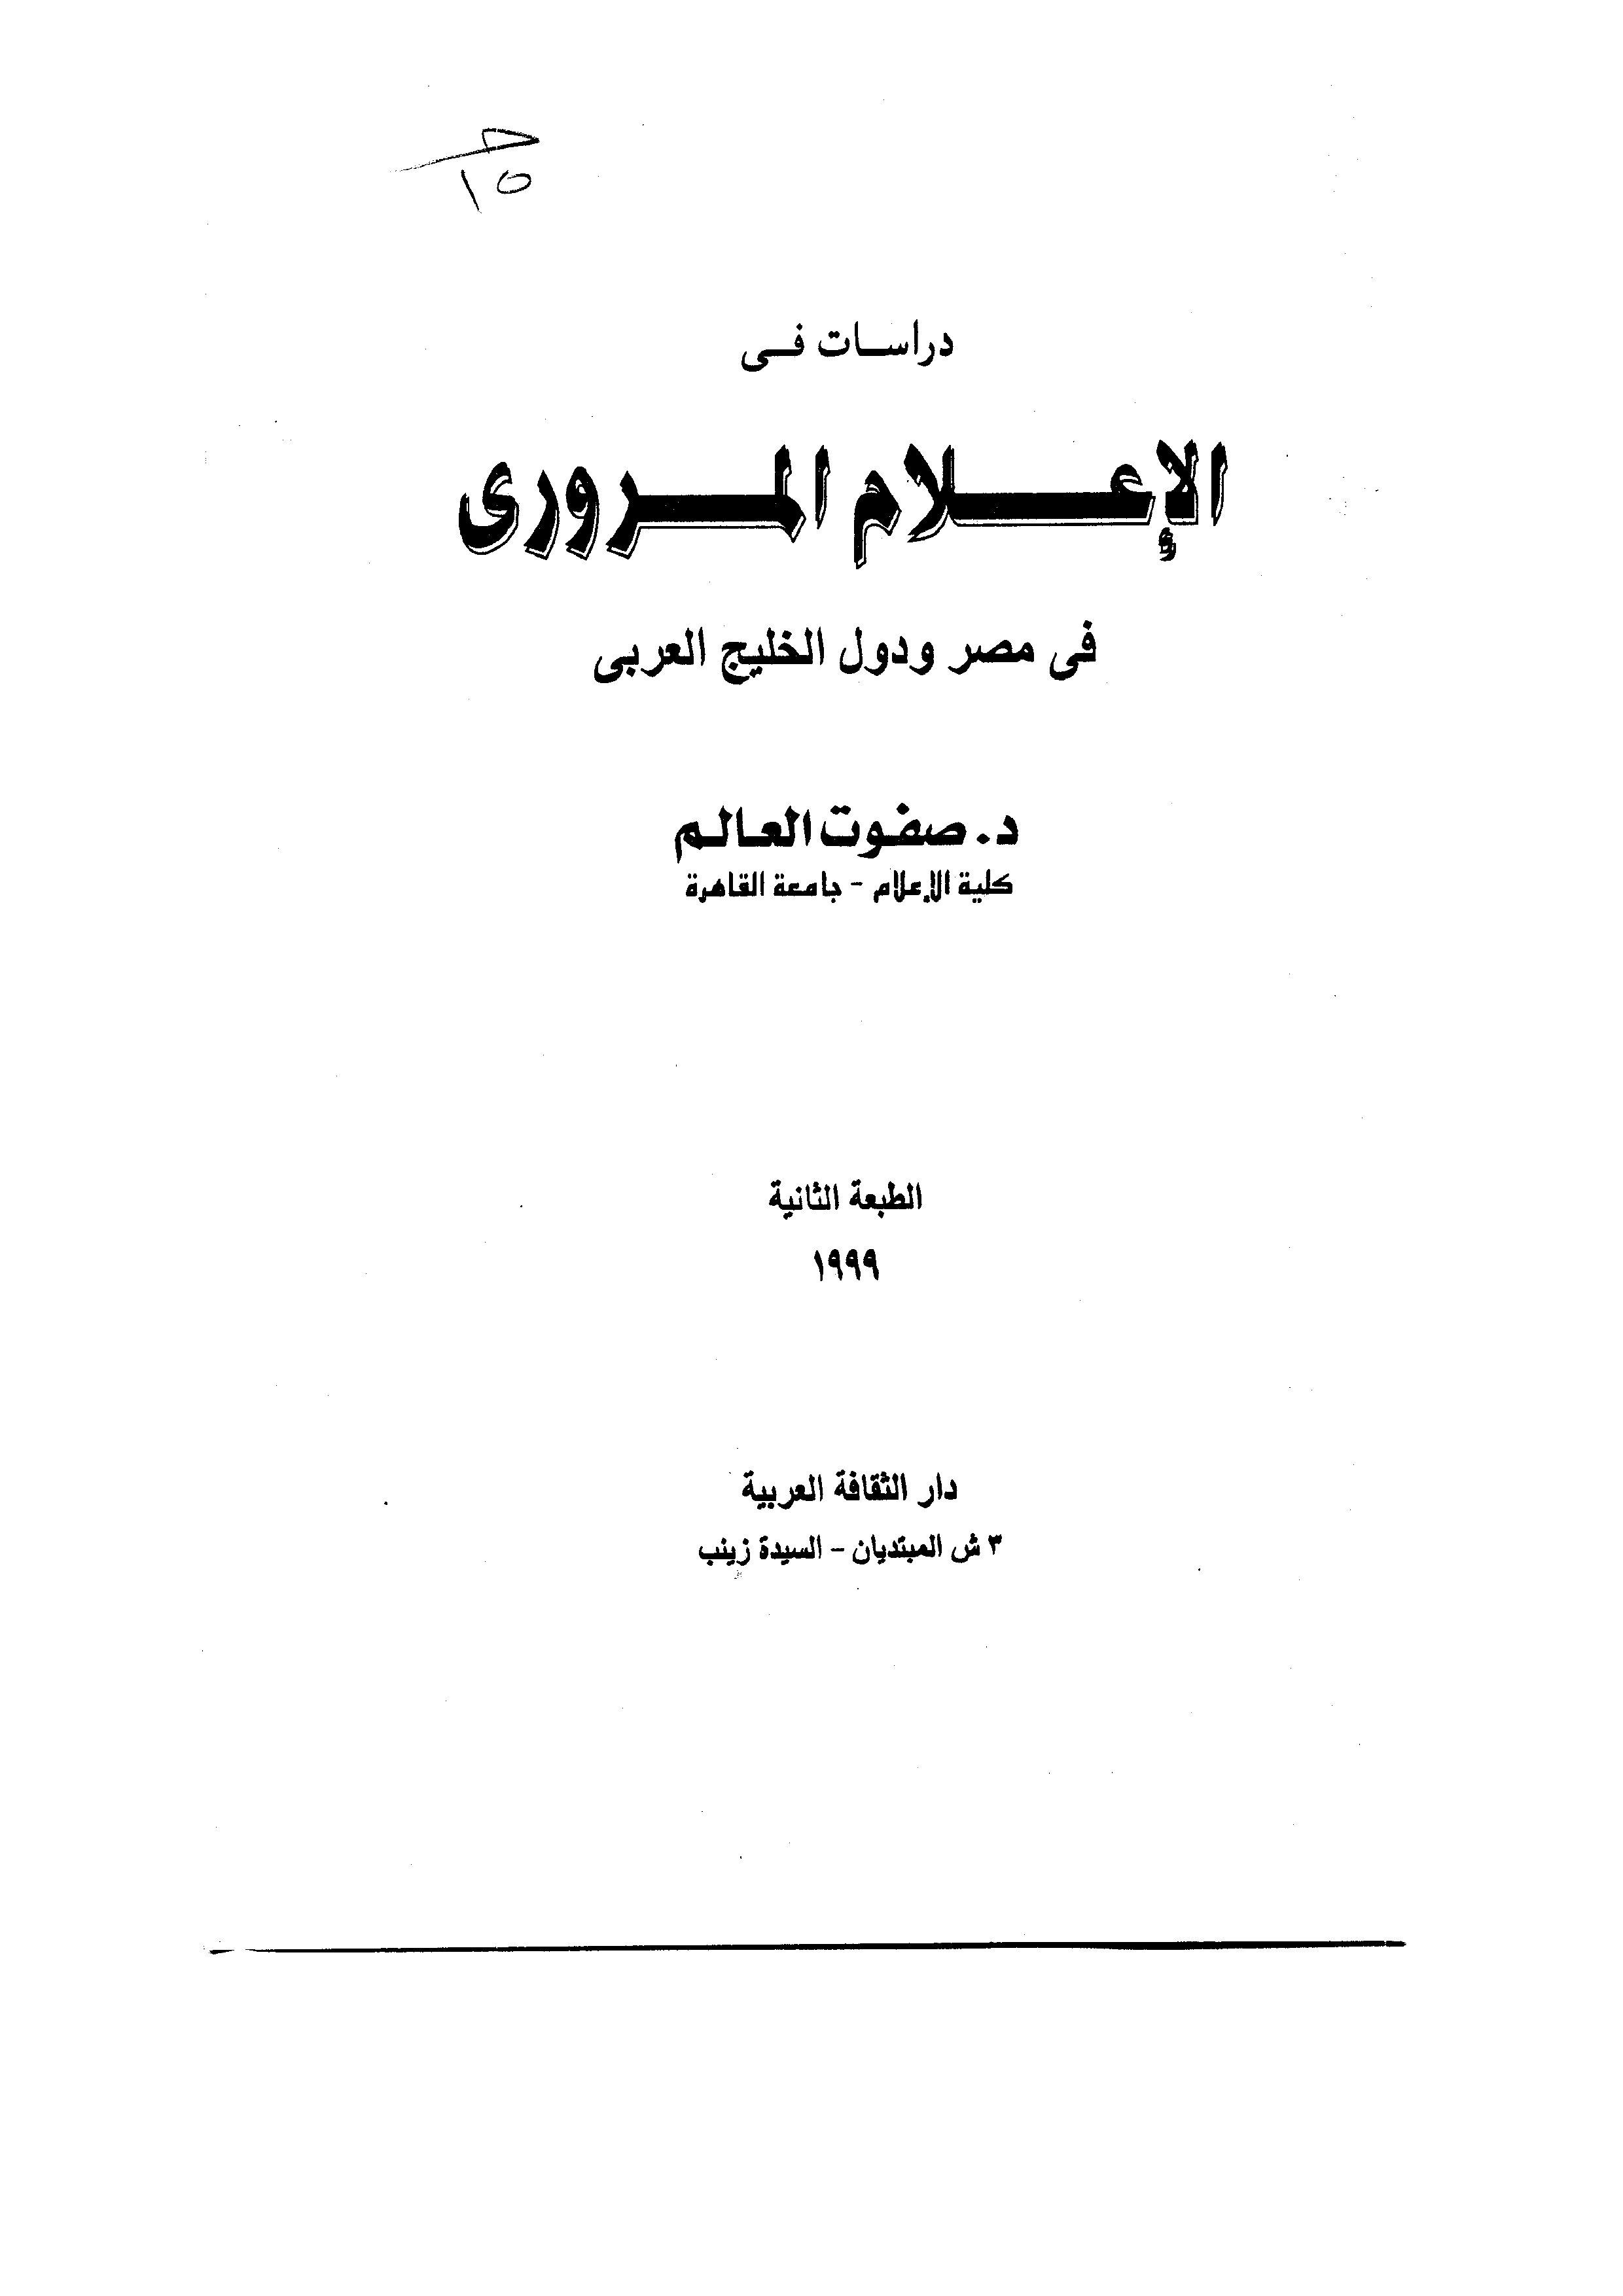 حـ
١٥
دراسات فى
الإعلام المرورى
فى مصر ودول الخليج العربى
د. صفوت العالم
كلية الإعلام - جامعة القاهرة
الطبعة الثانية
١٩٩٩
دار الثقافة العربية
٣ ش المبتديان - السيدة زينب